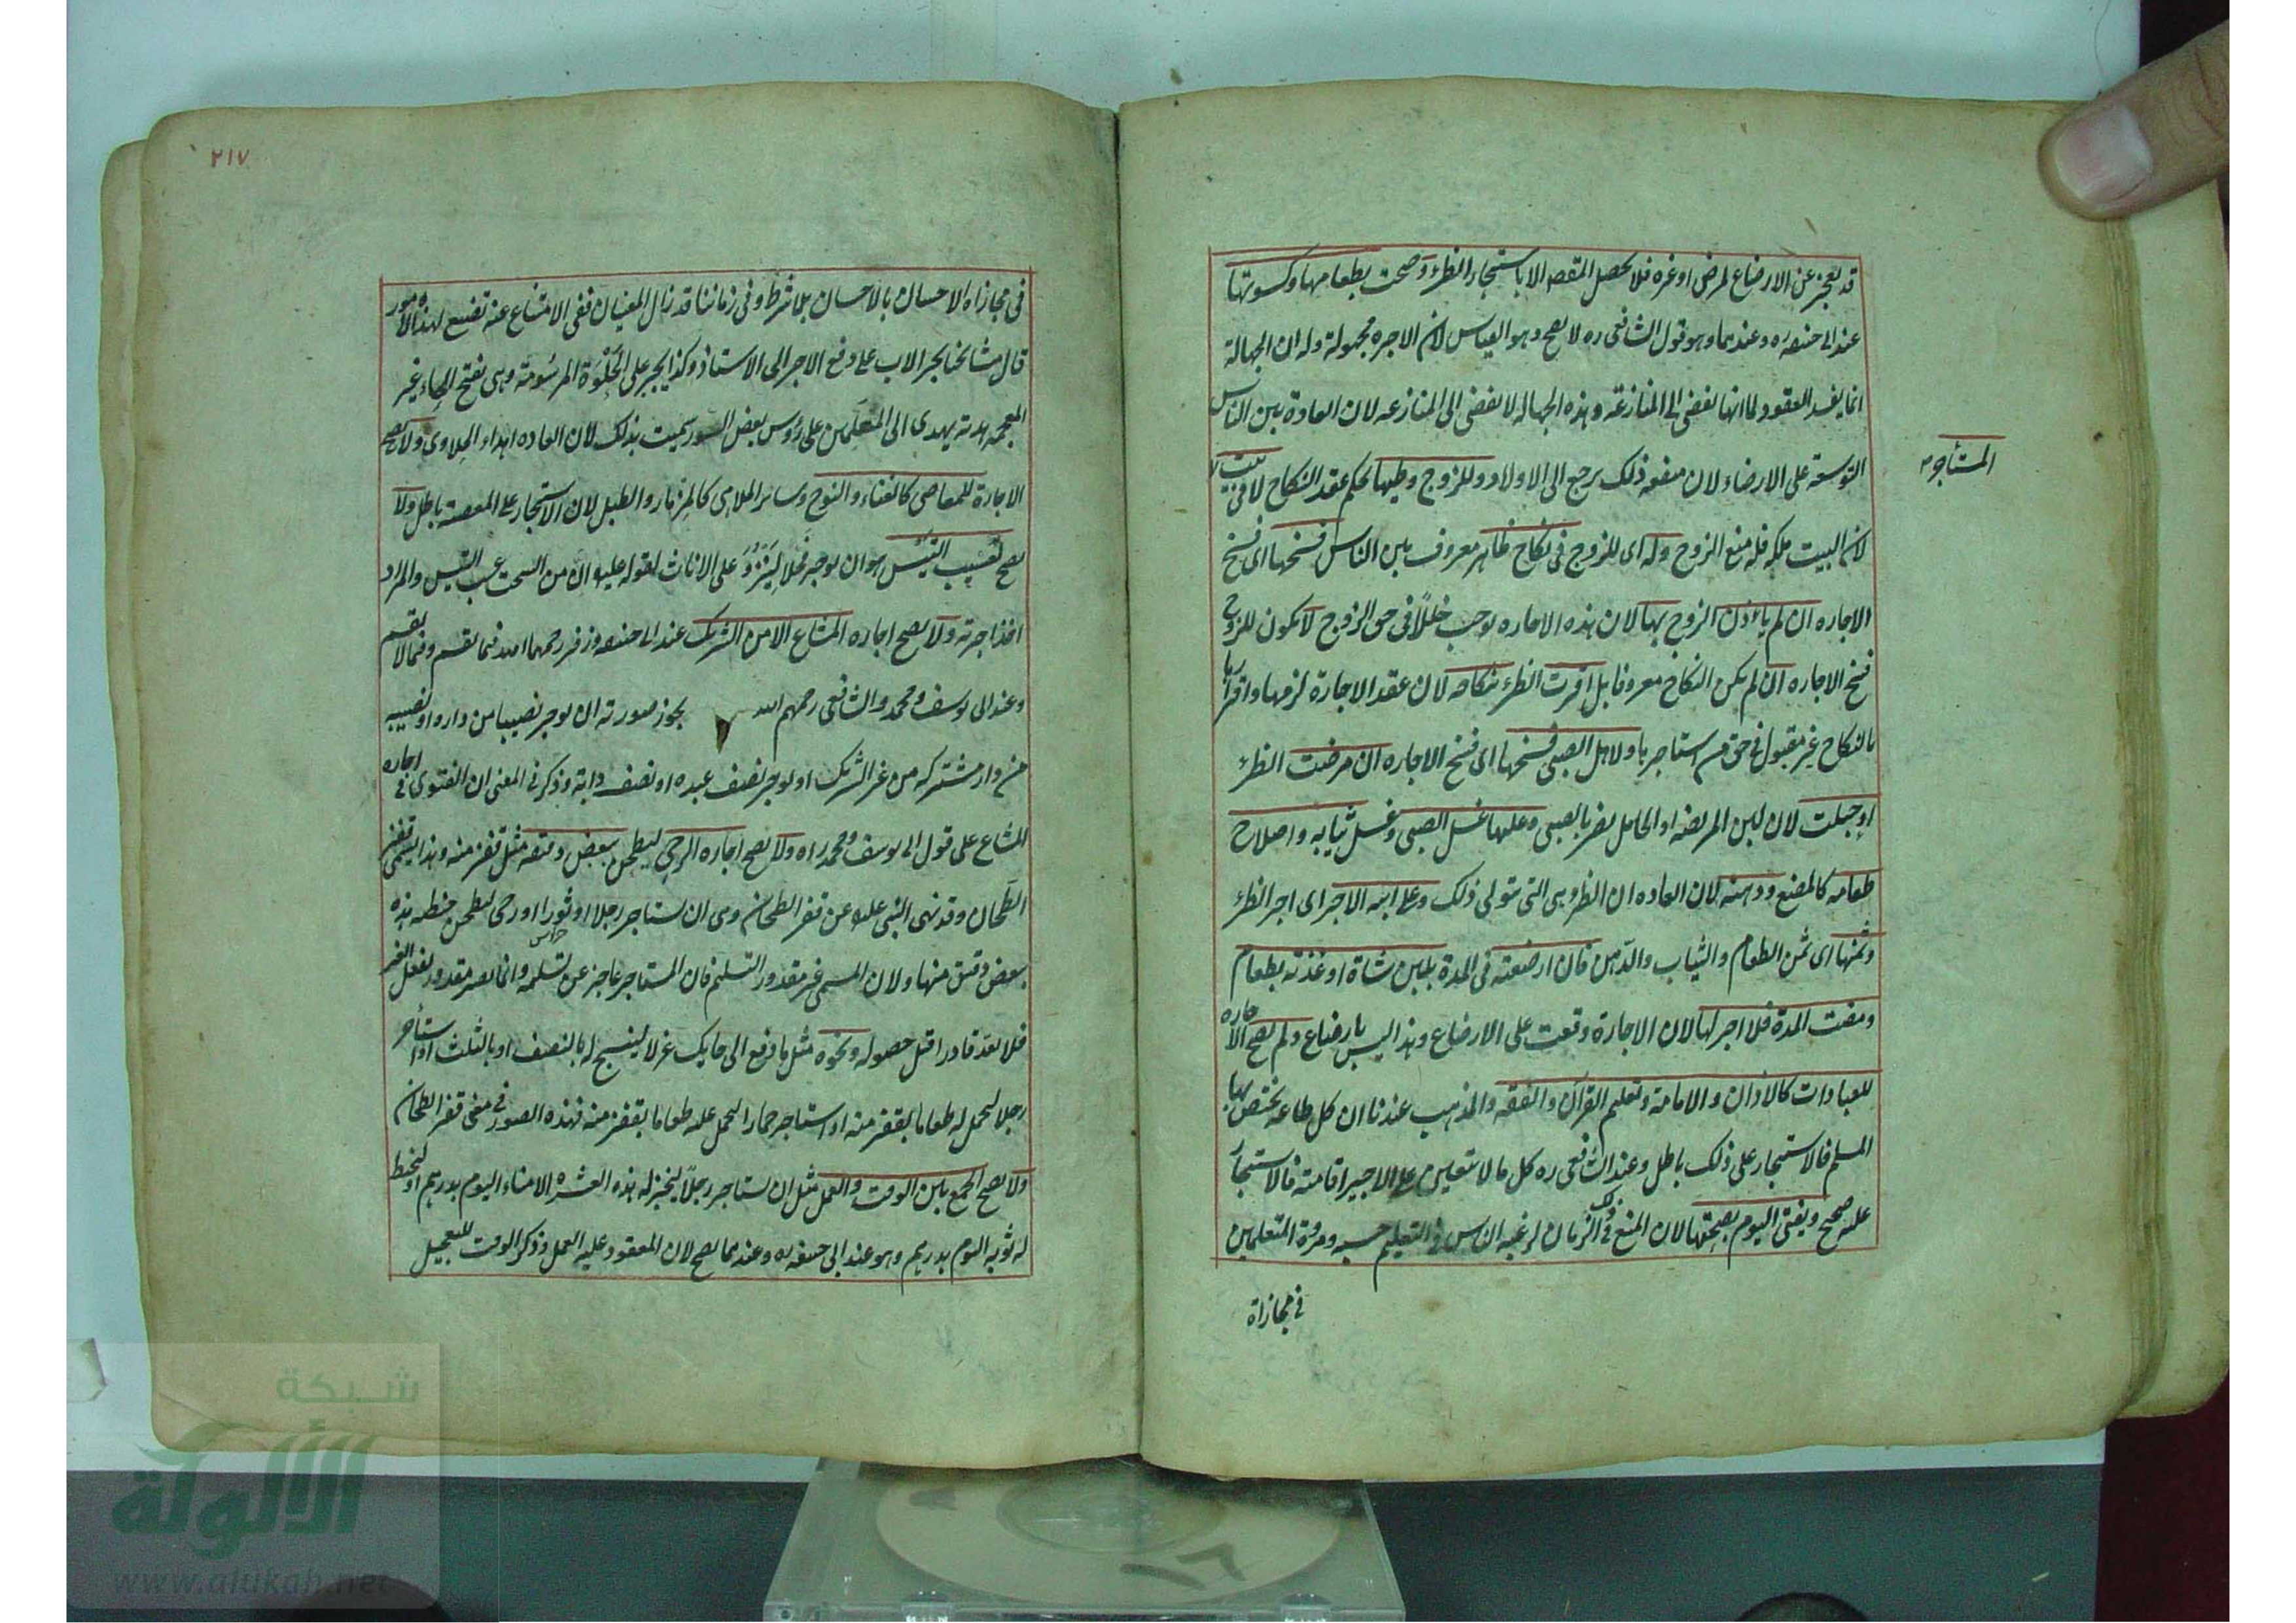 قد تعجز عن الارضاع لمرض او غيره فلا يحصل المقصد الا باستيجار الظئر وصحت بطعامها وكسوتها
عند ابى حنيفه ره وعندهما وهو قول الشافعى ره لا يصح وهو القياس لان الاجره مجهولة وله ان الجهالة
انما يفسد العقود لما انها تفضى الى المنازعة وهذه الجهاله لا تفضى الى المنازعه لان العادة بين الناس
المستأجر
التوسعة على الارضاء لان منفعه ذلك يرجع الى الاولاد وللزوج وطيها بحكم عقد النكاح لا فى بيت
لان البيت ملكه فله منع الزوج وله اى للزوج فى نكاح ظاهر معروف بين الناس فسخها اى فسخ
الاجاره ان لم يأذن الزوج بها لان هذه الاجاره يوجب خللًا فى حق الزوج لا يكون للزوج
فسخ الاجاره ان لم يكن النكاح معروفا بل اقرت الظئر بنكاحه لان عقد الاجارة لزمها واقرارها
بالنكاح غير مقبول فى حق من استاجرها ولاهل الصبى فسخها اى فسخ الاجاره ان مرضت الظئر
او حبلت لان لبن المريضه او الحامل يضر بالصبى وعليها غسل الصبى وغسل ثيابه واصلاح
طعامه كالمضغ ودهنه لان العاده ان الظئر هى التى تتولى ذلك وعلى ابيه الاجر اى اجر الظئر
وثمنها اى ثمن الطعام والثياب والدّهن فان ارضعته فى المدة بلبن شاة او غذته بطعام
ومضت المدة فلا اجر لها لان الاجارة وقعت على الارضاع وهذا ليس بارضاع ولم يصح الاجاره
للعبادات كالاذان والامامة وتعليم القرآن والفقه والمذهب عندنا ان كل طاعه يختص بها
المسلم فالاستيجار على ذلك باطل وعند الشافعى ره كل ما لا يتعين على الاجير اقامته فالاستيجار
عليه صحيح ويفتى اليوم بصحتها لان المنع فى ذلك الزمان لرغبه الناس فى التعليم حسبه ومروة المتعلمين
فى مجازاة
٢١٧
فى مجازاه الاحسان بالاحسان بلا شرط وفى زماننا قد زال المعنيان ففى الامتناع عنه تضييع لهذه الامور
قال مشايخنا يجبر الاب على دفع الاجر الى الاستاذ وكذا يجبر على الحَلْوَة المرسُومة وهى بفتح الحاء غير
المعجمه هدية يهدى الى المتعلّمين على رؤس بعض السور سميت بذلك لان العاده اهداء الحلاوى ولا يصح
الاجارة للمعاصى كالغناء والنوح وسائر الملاهى كالمزمار والطبل لان الاستيجار على المعصية باطل ولا
يصح لعسيب التيس هو ان يوجر فحلا لِيَنْزُوَ على الاناث لقوله عليه ان من السحت عسب التيس والمراد
اخذ اجرته ولا يصح اجاره المشاع الا من الشريك عند ابى حنيفه وزفر رحمهما الله فيما يقسم وفيما لا يقسم
وعند ابى يوسف ومحمد والشافعى رحمهم الله يجوز صورته ان يوجر نصيبا من داره او نصيبه
من دار مشتركه من غير الشريك او يوجر نصف عبده او نصف دابة وذكر فى المغنى ان الفتوى فى اجاره
المشاع على قول ابى يوسف ومحمد ره ولا يصح اجاره الرحى ليطحن ببعض دقيقه مثل قفيز منه وهذا يسمى قفيز
الطّحان وقد نهى النبى عليه عن قفيز الطحان وهى ان يستاجر رجلا او ثورا او رحى ليطحن حنطه بهذه
ببعض دقيق منها ولان المسمى غير مقدور التسليم فان المستاجر عاجز عن تسليمه وانما يصير مقدور بفعل الغير
فلا يعد قادرا قبل حصوله ونحوه مثل ما دفع الى حايك غزلا لينسج له بالنصف او بالثلث او استأجر
رجلا ليحمل له طعاما بقفيز منه او استاجر حمارا ليحمل عليه طعاما بقفيز منه فهذه الصور فى معنى قفيز الطحان
ولا يصح الجمع بين الوقت والعمل مثل ان يستاجر رجلًا ليخبز له هذه العشره الامناء اليوم بدرهم او ليخيط
له ثوبه اليوم بدرهم وهو عند ابى حنيفه ره وعندهما يصح لان المعقود عليه العمل وذكر الوقت للتعجيل
شبكة
الألوكة
www.alukah.net